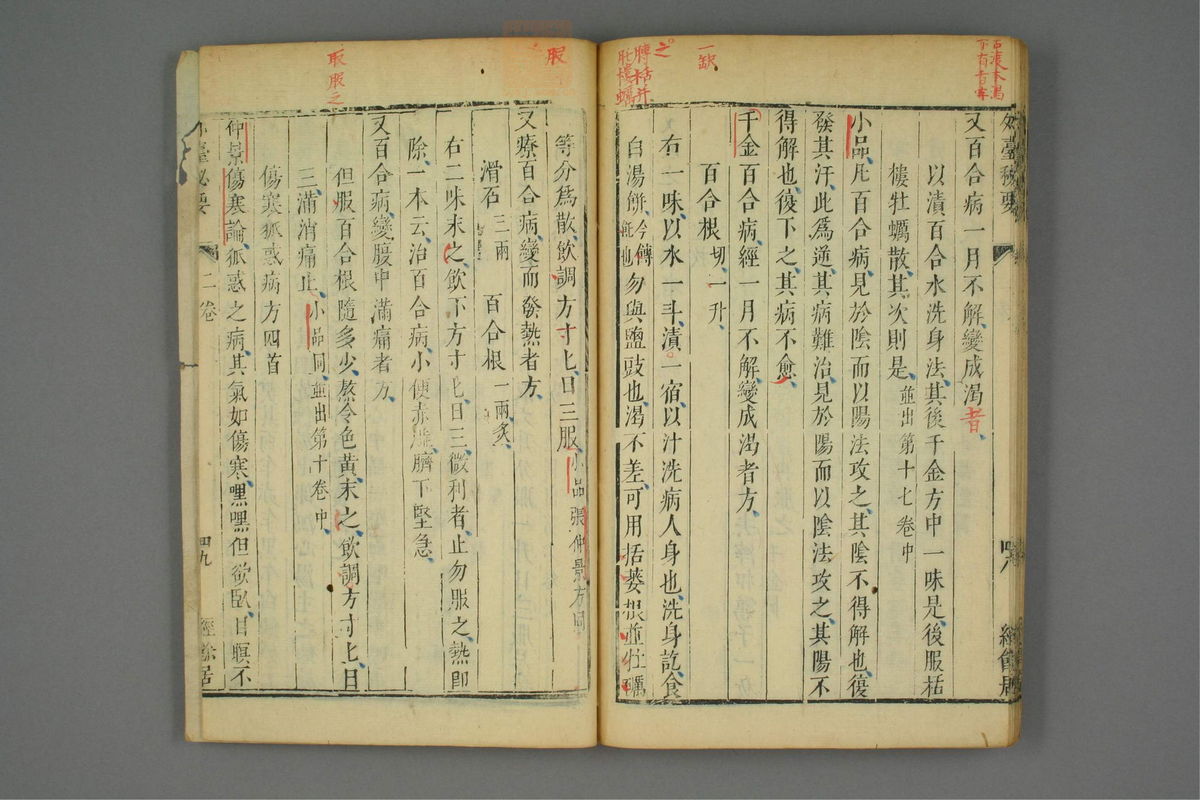 古漢本渴
下有者字
一缺
之
轉栝并
牡樓蠣
外臺秘要
又百合病一月不解變成渴者
以漬百合水洗身法其後千金方中一味是後服栝
樓牡蠣散其次則是 並出第十七卷中
小品凡百合病見於陰而以陽法攻之其陰不得解也復
發其汗此為逆其病難治見於陽而以陰法攻之其陽不
得解也復下之其病不愈
千金百合病經一月不解變成渴者方
百合根切一升
右一味以水一斗漬一宿以汁洗病人身也洗身訖食
白湯餅今傳飥也勿與鹽豉也渴不差可用括蔞根並牡蠣
服
服服之
等分為散飲調方寸匕日三服小品張仲景方同
又療百合病變而發熱者方
滑石三兩 百合根一兩炙
右二味末之飲下方寸匕日三微利者止勿服之熱即
除一本云治百合病小便赤澁臍下堅急
又百合病變腹中滿痛者方
但服百合根隨多少熬令色黃末之飲調方寸匕日
三滿消痛止小品同並出第十卷中
傷寒狐惑病方四首
仲景傷寒論狐惑之病其氣如傷寒嘿嘿但欲臥目瞑不
外臺秘要 二卷 四九 經餘居